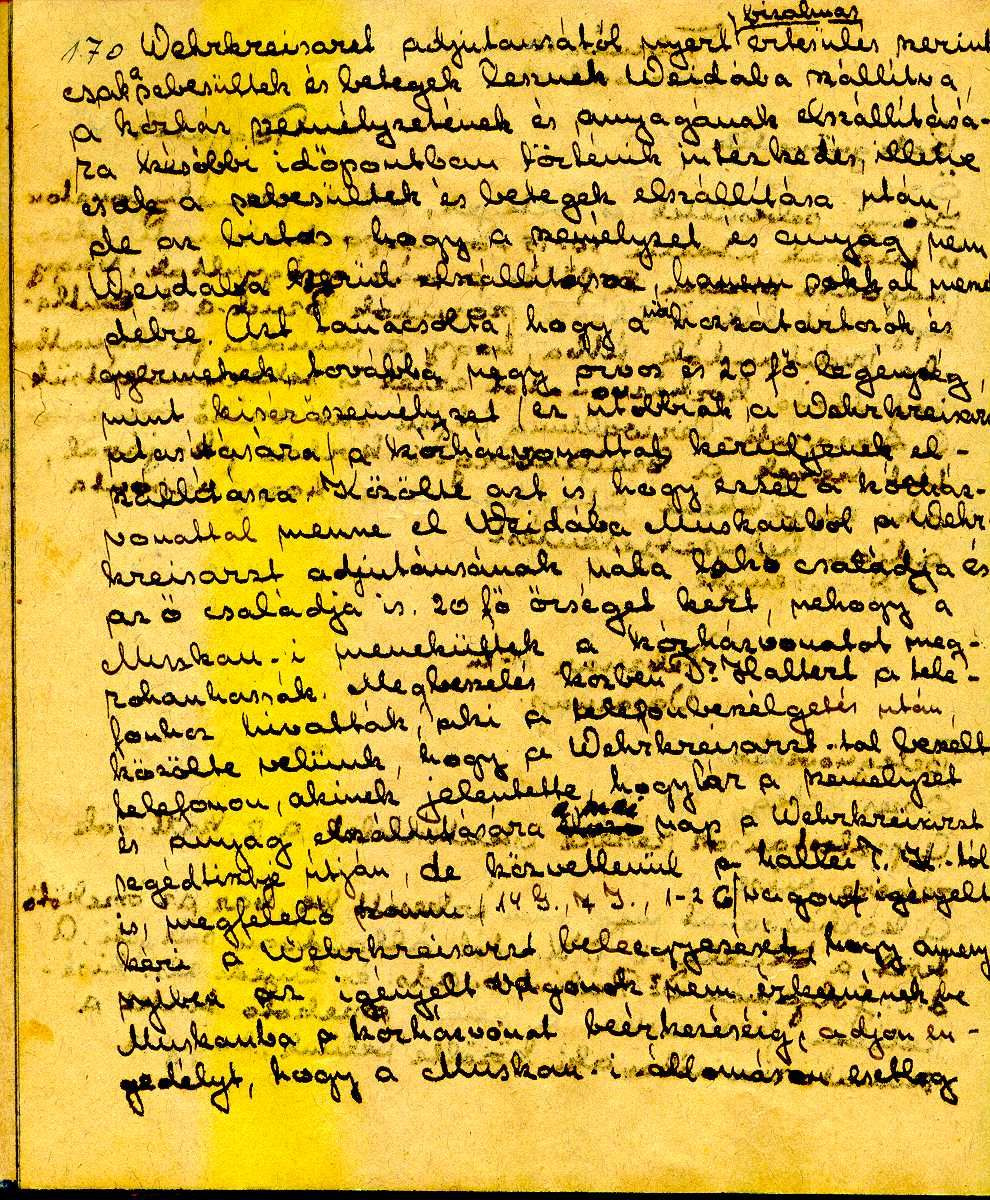 bizalmas
170 Wehrkreisarzt adjutánsától nyert értesülés szerint
csak a sebesültek és betegek lesznek Weidába szállítva,
a kórház személyzetének és anyagának elszállításá-
ra későbbi időpontban történik intézkedés, illetve
csak a sebesültek és betegek elszállítása után,
de az biztos, hogy a személyzet és anyag nem
Weidába kerül elszállításra, hanem sokkal messz
délre. Azt tanácsolta, hogy a női hozzátartozók és
gyermekek, továbbá négy orvos és 20 fő legénység
mint kisérőszemélyzet /ez utóbbiak a Wehrkreisarzt
utasítására/ a kórházvonattal kerüljenek el-
szállításra. Közölte azt is, hogy ezzel a kórház-
vonattal menne el Weidába Muskauból a Wehr-
kreisarzt adjutánsának nála lakó családja és
az ő családja is. 20 fő őrséget kért, nehogy a
Muskau-i menekültek a kórházvonatot meg-
rohanhassák. Megbeszélés közben Dr. Haltert a tele-
fonhoz hivatták, aki a telefonbeszélgetés után,
közölte velünk, hogy a Wehrkreisarzt-tal beszélt
telefonon, akinek jelentette, hogy bár a személyzet
és anyag elszállítására a mai nap a Wehrkreisarzt
segédtisztje útján, de közvetlenül a T. K.-tól
is, megfelelő számú /14 G., 7 J., 1-2 G/ vagont igényelt
kéri a Wehrkreisarzt beleegyezését, hogy ameny-
nyiben az igényelt vagonok nem érkeznének be
Muskauba a kórházvonat beérkezéséig, adjon en-
gedélyt, hogy a Muskau-i állomáson esetleg